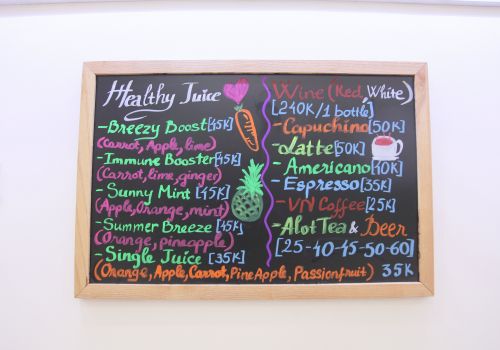 Healthy Juice
-Breezy Boost [45K]
(Carrot, Apple, lime)
-Immune Booster [45K]
(Carrot, lime, ginger)
-Sunny Mint [45K]
(Apple, Orange, mint)
-Summer Breeze [45K]
(Orange, pineapple)
-Single Juice [35K]
(Orange, Apple, Carrot, PineApple, Passionfruit) 35K
Wine (Red, White)
[240K/1 bottle]
-Capuchino [50K]
-Latte [50K]
-Americano [40K]
-Espresso [35K]
-VN Coffee [25K]
-Alot Tea & Beer
[25-40-45-50-60]